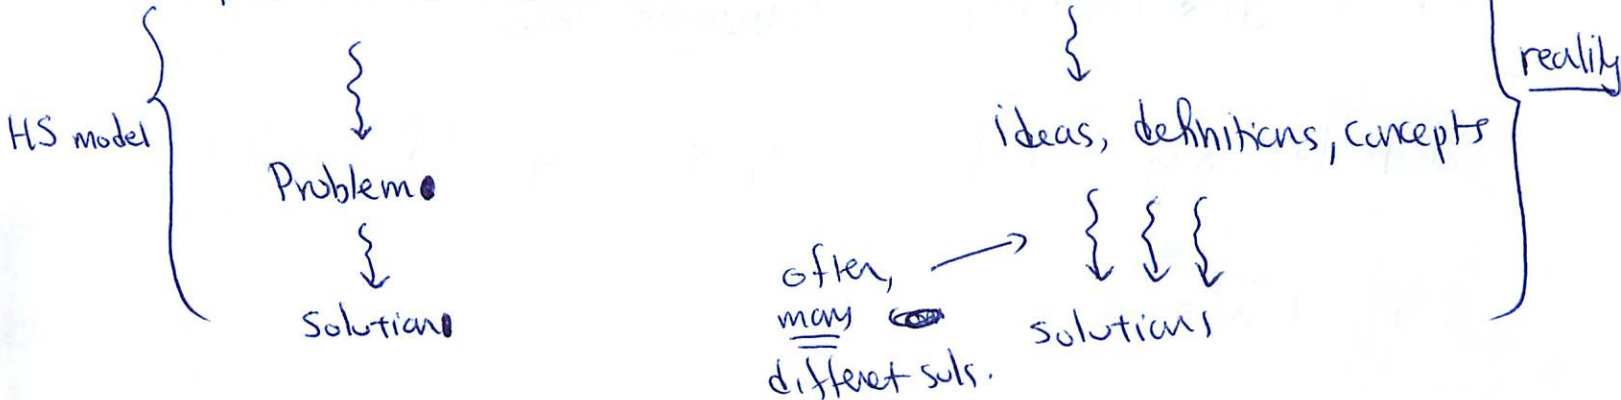 HS model
Problem
Solution
ideas, definitions, concepts
often,
many
differet sols.
solutions
reality